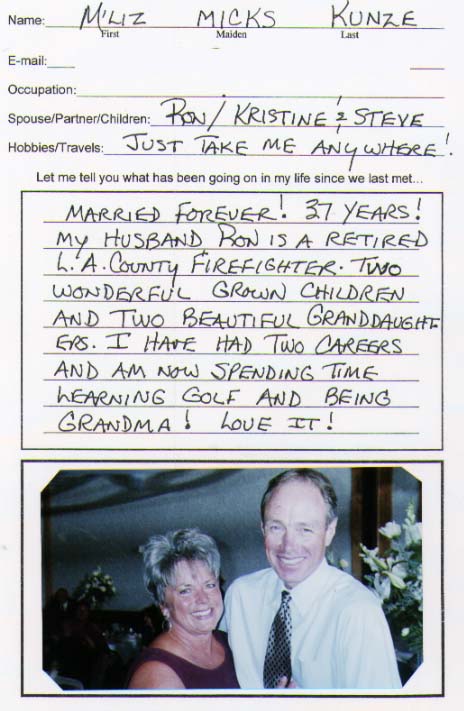 Name: M'LIZ MICKS KUNZE
First Maiden Last
E-mail:
Occupation:
Spouse/Partner/Children: RON/ KRISTINE & STEVE
Hobbies/Travels: JUST TAKE ME ANYWHERE!
Let me tell you what has been going on in my life since we last met...
MARRIED FOREVER! 37 YEARS!
MY HUSBAND RON IS A RETIRED
L.A. COUNTY FIREFIGHTER. TWO
WONDERFUL GROWN CHILDREN
AND TWO BEAUTIFUL GRANDDAUGHT
ERS. I HAVE HAD TWO CAREERS
AND AM NOW SPENDING TIME
LEARNING GOLF AND BEING
GRANDMA! LOVE IT!